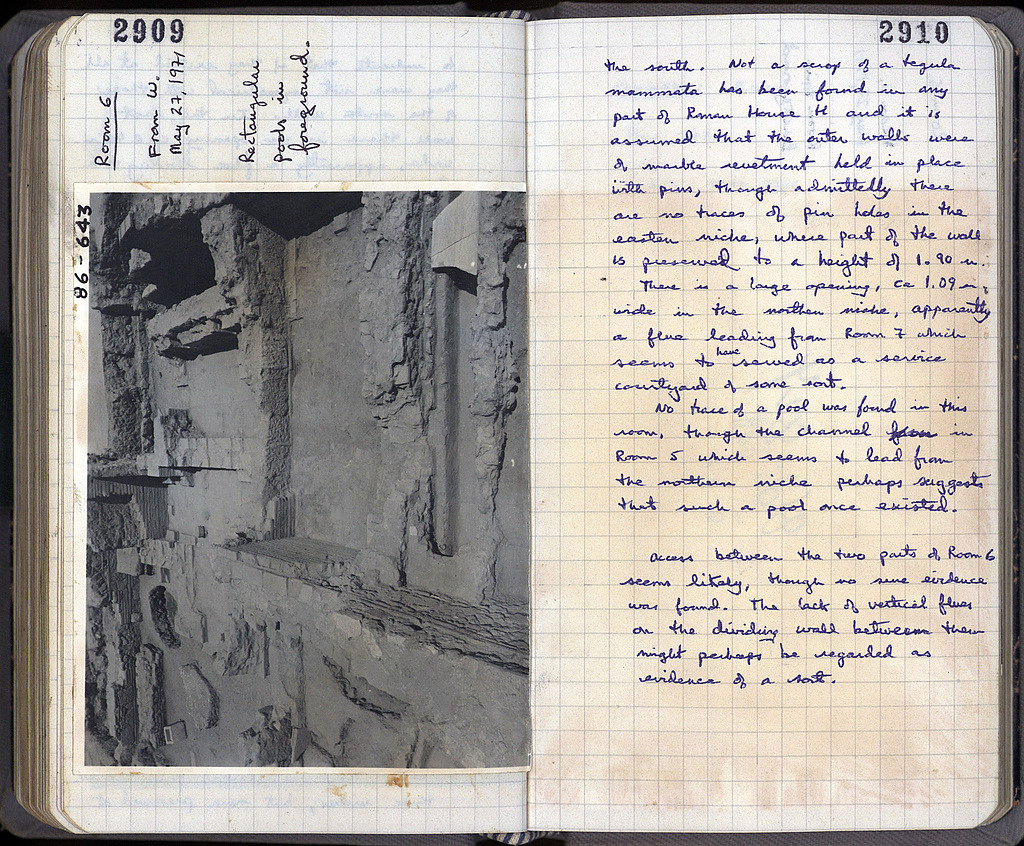 2909
Room 6
From W.
May 27, 1971
Rectangular
pools in
foreground.
86-643
2910
the south. Not a scrap of a tegula
mammata has been found in any
part of Roman House H and it is
assumed that the outer walls were
of marble revetment held in place
with pins, though admittedly there
are no traces of pin holes in the
eastern niche, where part of the wall
is preserved to a height of 1.90 m.
There is a large opening, ca 1.09 m.
wide in the northern niche, apparently
a flue leading from Room 7 which
seems to have served as a service
courtyard of some sort.
No trace of a pool was found in this
room, though the channel in
Room 5 which seems to lead from
the northern niche perhaps suggests
that such a pool once existed.
Access between the two parts of Room 6
seems likely, though no sure evidence
was found. The lack of vertical flues
on the dividing wall between them
might perhaps be regarded as
evidence of a sort.